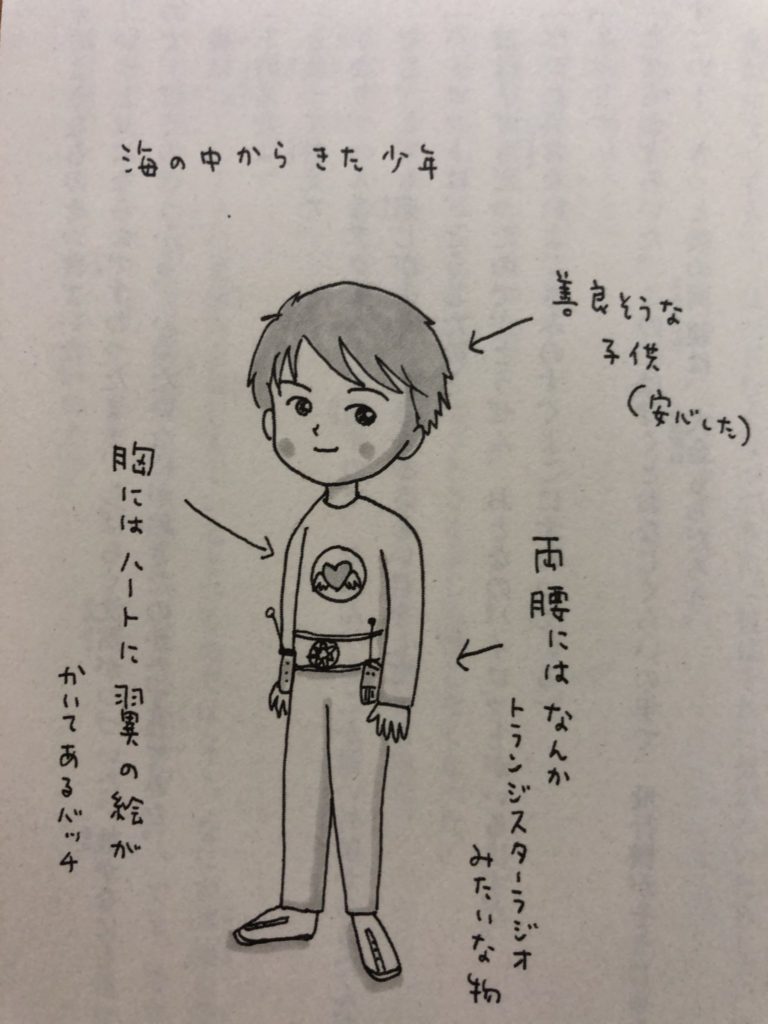 海の中からきた少年
善良そうな
子供
(安心した)
胸にはハートに翼の絵が
かいてあるバッチ
両腰にはなんか
トランジスターラジオ
みたいな物